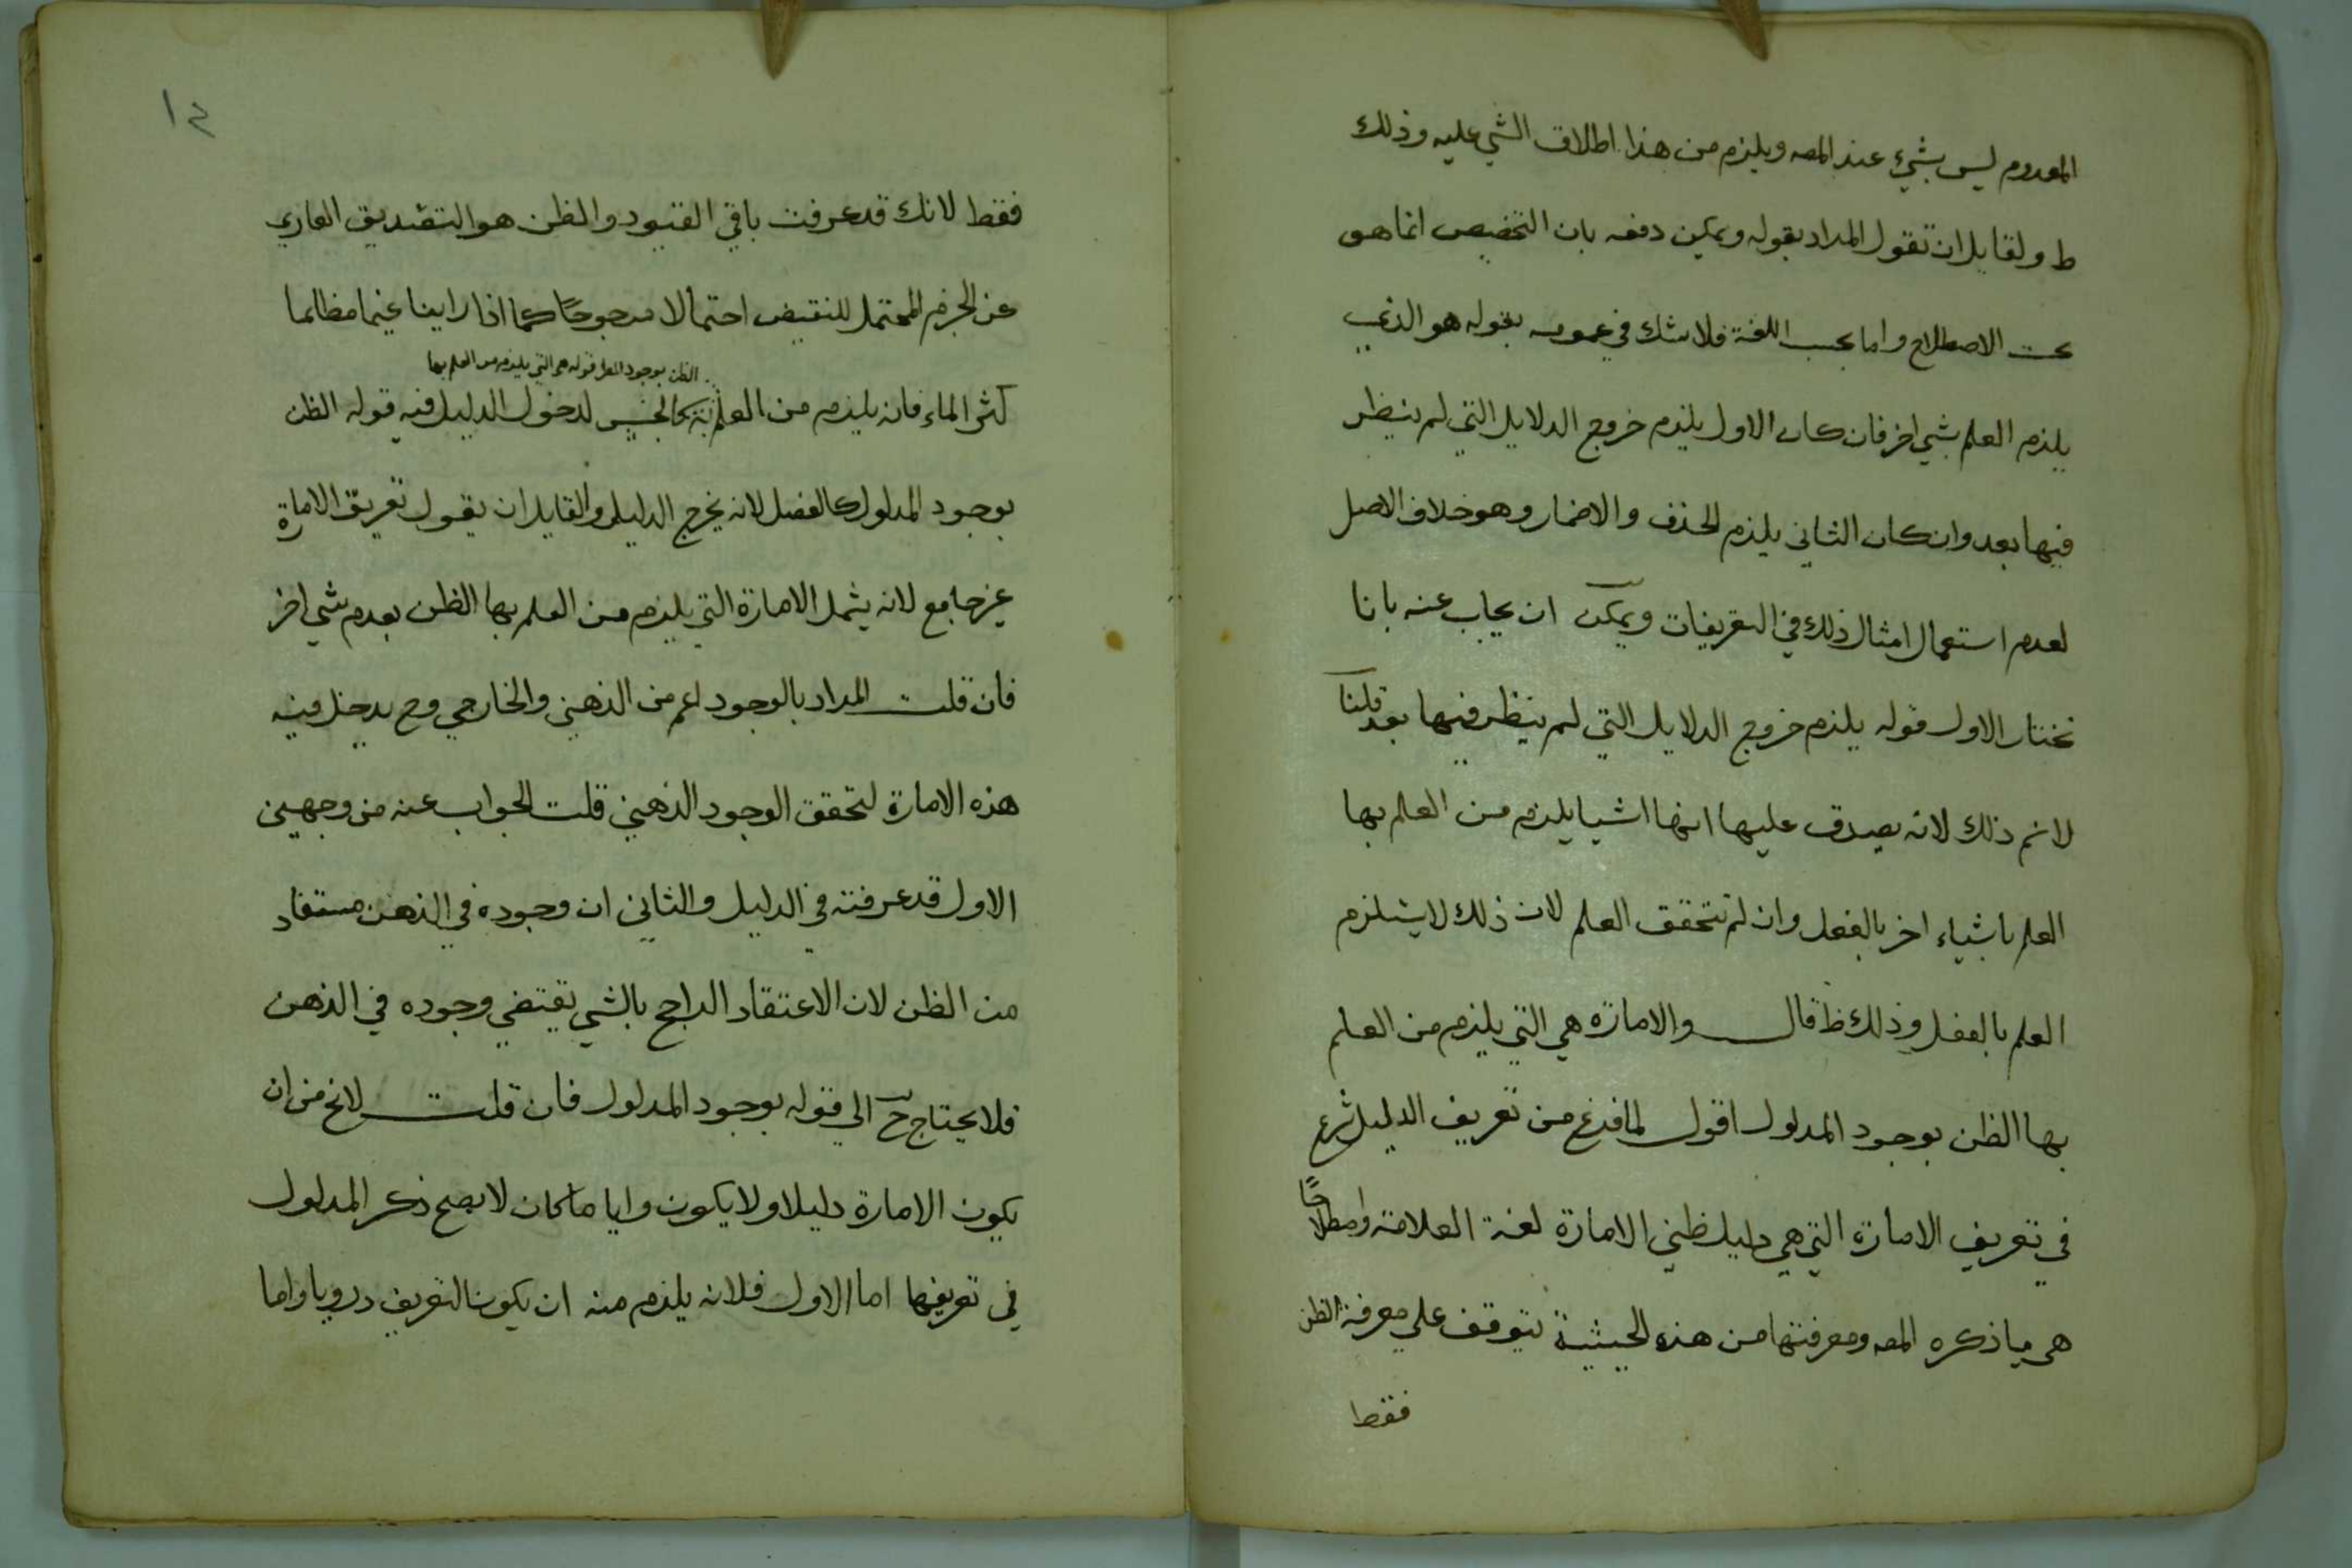 المعدوم ليس بشيء عند المصه ويلزم من هذا اطلاق الشي عليه وذلك
ط ولقايل ان تقول المراد بقوله ويمكن دفعه بان التخصيص انما هو
بحسب الاصطلاح واما بحسب اللغة فلا شك في عمومه بقوله هو الذي
يلزم العلم بشي اخر فان كان الاول يلزم خروج الدلايل التي لم ينظر
فيها بعد وان كان الثاني يلزم الحذف والاضمار وهو خلاف الاصل
لعدم استعمال امثال ذلك في التعريفات ويمكن ان يجاب عنه بانا
نختار الاول قوله يلزم خروج الدلايل التي لم ينظر فيها بعد قلنا
لانم ذلك لانه يصدق عليها انها اشيا يلزم من العلم بها
العلم باشياء اخر بالفعل وان لم تتحقق العلم لان ذلك لا يستلزم
العلم بالفعل وذلك ظ قال والامارة هي التي يلزم من العلم
بها الظن بوجود المدلول اقول لما فرغ من تعريف الدليل شرع
في تعريف الامارة التي هي دليل ظني الامارة لغة العلامة واصطلاحًا
هي ما ذكره المصه ومعرفتها من هذه الحيثية تتوقف علي معرفة الظن
فقط
١٢
فقط لانك قد عرفت باقي القيود والظن هو التصديق العاري
عن الجزم المحتمل للنقيض احتمالا مرجوحًا كما اذا راينا غيما مظلما
الظن بوجود المطر قوله هي التي يلزم من العلم بها
كثير الماء فانه يلزم من العلم به كالجنس لدخول الدليل فيه قوله الظن
بوجود المدلول كالفصل لانه يخرج الدليل ولقايل ان يقول تعريف الامارة
غير جامع لانه يشمل الامارة التي يلزم من العلم بها الظن بعدم شي اخر
فان قلت المراد بالوجود اعم من الذهني والخارجي وح يدخل فيه
هذه الامارة لتحقق الوجود الذهني قلت الجواب عنه من وجهين
الاول قد عرفته في الدليل والثاني ان وجوده في الذهن مستفاد
من الظن لان الاعتقاد الراجح بالشي يقتضي وجوده في الذهن
فلا يحتاج ح الي قوله بوجود المدلول فان قلت لا يخ من ان
يكون الامارة دليلا ولا يكون وايا ما كان لا يصح ذكر المدلول
في تعريفها اما الاول فلانه يلزم منه ان يكون التعريف دوريا واما